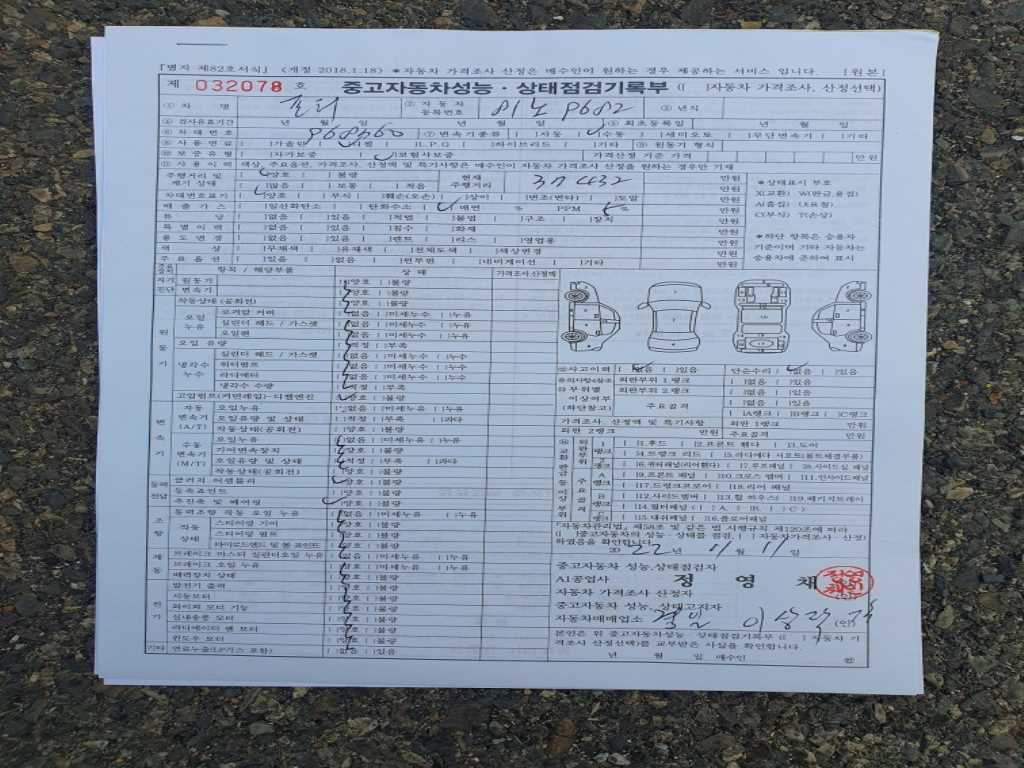 『별지 제82호서식』 〈개정 2018.1.18〉 ※자동차 가격조사 산정은 매수인이 원하는 경우 제공하는 서비스 입니다. [원본]
제 032078 호 중고자동차성능 · 상태점검기록부 ([ ]자동차 가격조사, 산정선택)
①차 명 포터 ②자동차등록번호 81노9682 ③연식
④검사유효기간 년 월 일 년 월 일 ⑤최초등록일 년 월 일
⑥차대번호 968560 ⑦변속기종류 [ ]자동 [ ]수동 [ ]세미오토 [ ]무단변속기 [ ]기타
⑧사용연료 [ ]가솔린 [ ]디젤 [ ]L.P.G [ ]하이브리드 [ ]기타 ⑨원동기 형식
⑩보증유형 [ ]자가보증 [ ]보험사보증 가격산정 기준 가격 만원
⑪사용이력 색상, 주요옵션, 가격조사, 산정액 및 특기사항은 매수인이 자동차 가격조사 산정을 원하는 경우만 기재
주행거리 및 계기 상태 [ ]양호 [ ]불량 현재 주행거리 37432 만원
[ ]많음 [ ]보통 [ ]적음 만원
차대번호표기 [ ]양호 [ ]부식 [ ]훼손(오손) [ ]상이 [ ]변조(변타) [ ]도말 만원
배출가스 [ ]일산화탄소 [ ]탄화수소 [ ]매연 % PPM % 만원
튜닝 [ ]없음 [ ]있음 [ ]적법 [ ]불법 [ ]구조 [ ]장치 만원
특별이력 [ ]없음 [ ]있음 [ ]침수 [ ]화재 만원
용도변경 [ ]없음 [ ]있음 [ ]렌트 [ ]리스 [ ]영업용 만원
색상 [ ]무채색 [ ]유채색 [ ]전체도색 [ ]색상변경 만원
주요옵션 [ ]있음 [ ]없음 [ ]썬루프 [ ]네비게이션 [ ]기타 만원
※상태표시 부호
X(교환) W(판금,용접)
A(흠집) U(요철)
C(부식) T(손상)
※하단 항목은 승용차
기준이며 기타 자동차는
승용차에 준하여 표시
항목 / 해당부품 상 태 가격조사,산정액
자기진단 원동기 [ ]양호 [ ]불량
변속기 [ ]양호 [ ]불량
원동기 작동상태(공회전) [ ]양호 [ ]불량
오일누유 로커암 커버 [ ]없음 [ ]미세누유 [ ]누유
실린더 헤드 / 가스켓 [ ]없음 [ ]미세누유 [ ]누유
오일팬 [ ]없음 [ ]미세누유 [ ]누유
오일 유량 [ ]적정 [ ]부족
냉각수누수 실린더 헤드 / 가스켓 [ ]없음 [ ]미세누수 [ ]누수
워터펌프 [ ]없음 [ ]미세누수 [ ]누수
라디에터 [ ]없음 [ ]미세누수 [ ]누수
냉각수 수량 [ ]적정 [ ]부족
고압펌프(커먼레일)-디젤엔진 [ ]양호 [ ]불량
변속기 자동변속기(A/T) 오일누유 [ ]없음 [ ]미세누유 [ ]누유
오일유량 및 상태 [ ]적정 [ ]부족 [ ]과다
작동상태(공회전) [ ]양호 [ ]불량
수동변속기(M/T) 오일누유 [ ]없음 [ ]미세누유 [ ]누유
기어변속장치 [ ]양호 [ ]불량
오일유량 및 상태 [ ]적정 [ ]부족 [ ]과다
작동상태(공회전) [ ]양호 [ ]불량
동력전달 클러치 어셈블리 [ ]양호 [ ]불량
등속죠인트 [ ]양호 [ ]불량
추진축 및 베어링 [ ]양호 [ ]불량
조향 동력조향 작동 오일 누유 [ ]없음 [ ]미세누유 [ ]누유
작동상태 스티어링 기어 [ ]양호 [ ]불량
스티어링 펌프 [ ]양호 [ ]불량
타이로드엔드 및 볼 죠인트 [ ]양호 [ ]불량
제동 브레이크 마스터 실린더오일 누유 [ ]없음 [ ]미세누유 [ ]누유
브레이크 오일 누유 [ ]없음 [ ]미세누유 [ ]누유
배력장치 상태 [ ]양호 [ ]불량
전기 발전기 출력 [ ]양호 [ ]불량
시동모터 [ ]양호 [ ]불량
와이퍼 모터 기능 [ ]양호 [ ]불량
실내송풍 모터 [ ]양호 [ ]불량
라디에이터 팬 모터 [ ]양호 [ ]불량
윈도우 모터 [ ]양호 [ ]불량
기타 연료누출(LP가스 포함) [ ]없음 [ ]있음
⑫사고이력 [ ]없음 [ ]있음 단순수리 [ ]없음 [ ]있음
외판부위 1랭크 [ ]없음 [ ]있음
외판부위 2랭크 [ ]없음 [ ]있음
주요골격 [ ]없음 [ ]있음
[ ]A랭크 [ ]B랭크 [ ]C랭크
가격조사, 산정액 및 특기사항 외판 1랭크 만원
외판 2랭크 만원 주요골격 만원
[ ]1.후드 [ ]2.프론트 휀더 [ ]3.도어
[ ]4.트렁크 리드 [ ]5.라디에터 서포트(볼트체결부품)
[ ]6.쿼터패널(리어휀다) [ ]7.루프패널 [ ]8.사이드실 패널
[ ]9.프론트 패널 [ ]10.크로스 멤버 [ ]11.인사이드패널
[ ]17.트렁크플로어 [ ]18.리어 패널
[ ]12.사이드멤버 [ ]13.휠 하우스 [ ]19.패키지트레이
[ ]14.필러패널 ( [ ]A, [ ]B, [ ]C )
[ ]15.대쉬패널 [ ]16.플로어패널
『자동차관리법』 제58조 및 같은 법 시행규칙 제120조에 따라
([ ]중고자동차의 성능 · 상태를 점검, [ ]자동차가격조사 · 산정)
하였음을 확인합니다.
2022년 11월 11일
중고자동차 성능.상태점검자
A1공업사 정 영 채
자동차 가격조사 산정자
중고자동차 성능, 상태고지자
자동차매매업소 경일 이상락 (인)
본인은 위 중고자동차성능 · 상태점검기록부 ([ ]자동차 가
격조사 산정선택)를 교부받은 사실을 확인합니다.
년 월 일 매수인 ㊞